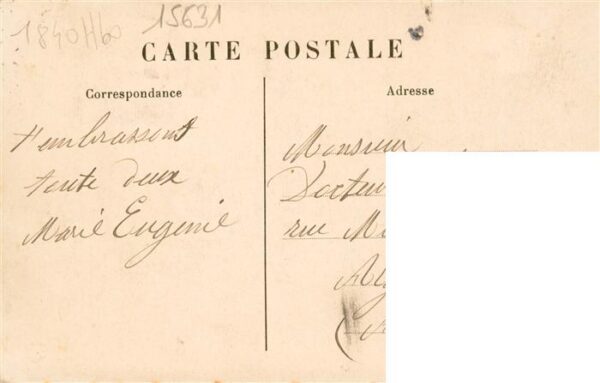 15631
CARTE POSTALE
Correspondance
t'embrassons
toute deux
Marie Eugenie
Adresse
Monsieur
Docteur
rue